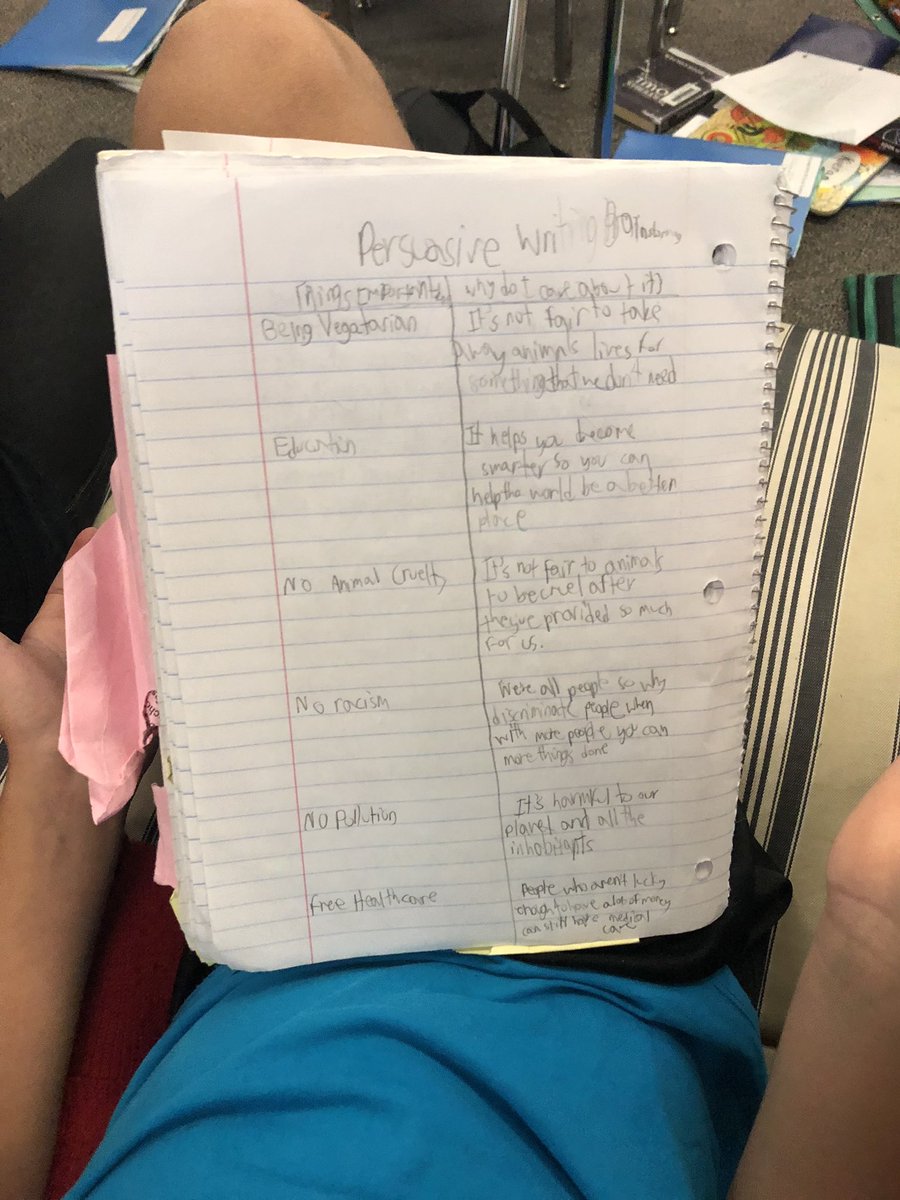 Persuasive Writing Brainstorming
Things Important why do I care about it?
Being Vegatarian
It's not fair to take
away animals lives for
something that we don't need
Education
It helps you become
smarter so you can
help the world be a better
place
No Animal Cruelty
It's not fair to animals
to be cruel after
they've provided so much
for us.
No racism
We're all people so why
discriminate people when
with more people you can
more things done
No Pollution
It's harmful to our
planet and all the
inhabitants
Free Healthcare
People who aren't lucky
enough to have a lot of money
can still have medical
care